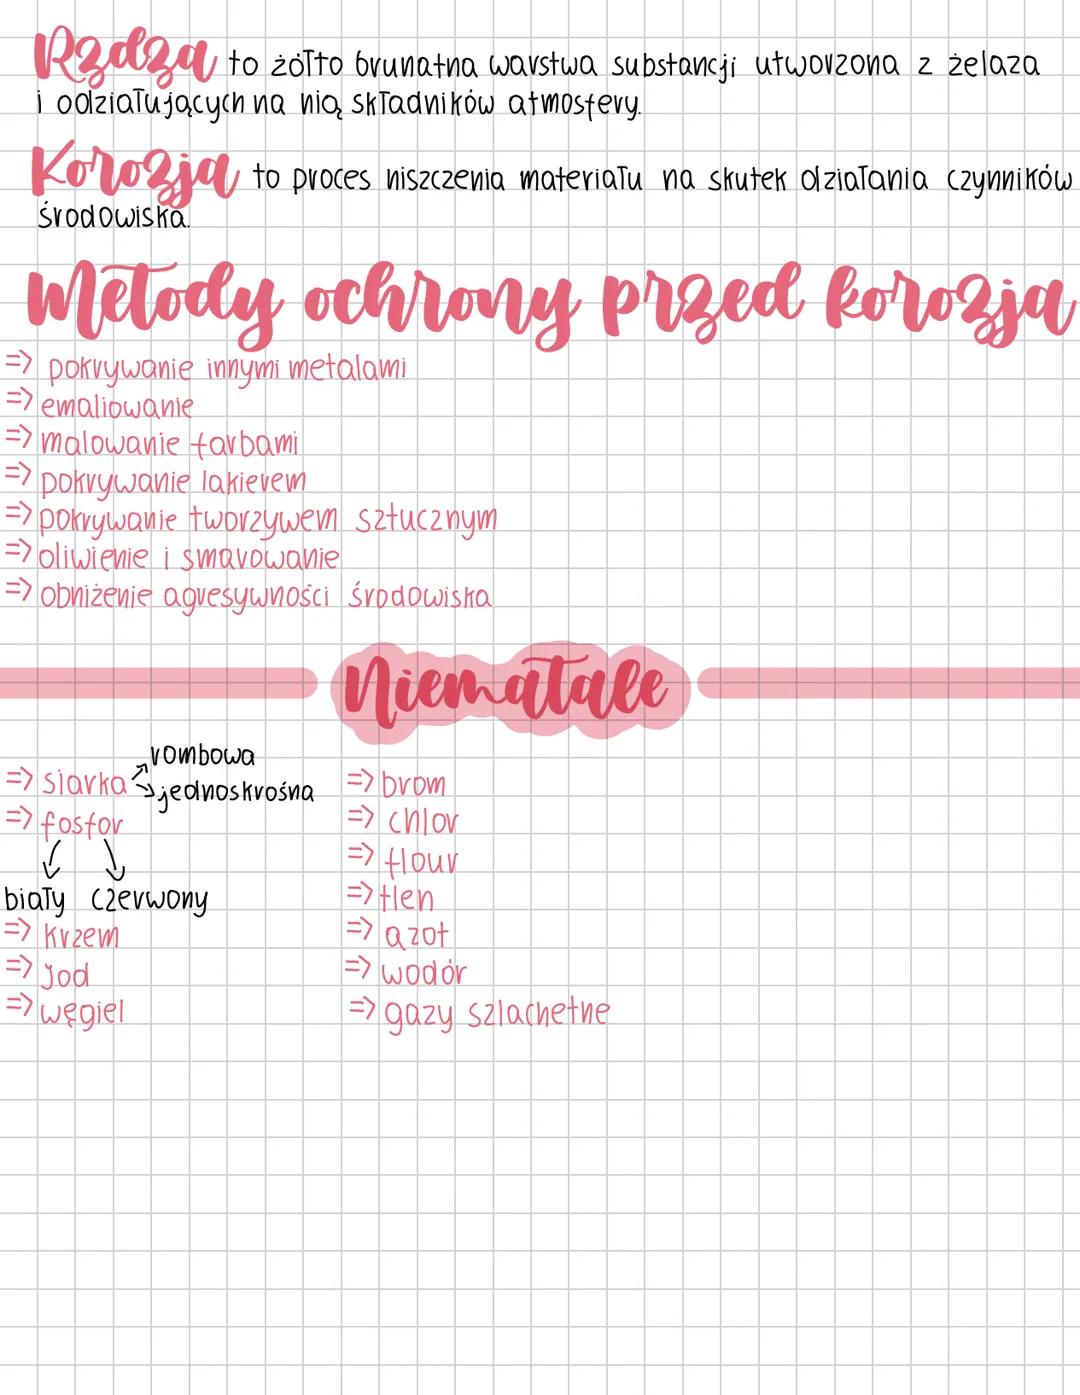 Rzdza to żółto brunatna warstwa substancji utworzona z żelaza
i odziałujących na nią składników atmosfery.
Korozja to proces niszczenia materiału na skutek działania czynników
środowiska.
Metody ochrony przed korozją
=> pokrywanie innymi metalami
=> emaliowanie
=> malowanie farbami
=> pokrywanie lakierem
=> pokrywanie tworzywem sztucznym
=> oliwienie i smarowanie
=> obniżenie agresywności środowiska
Niematale
=> siarka
rombowa
jednoskrośna
=> fosfor
biały czerwony
=> krzem
=> Jod
=> węgiel
=> brom
=> chlor
=> flour
=> tlen
=> azot
=> wodór
=> gazy szlachetne